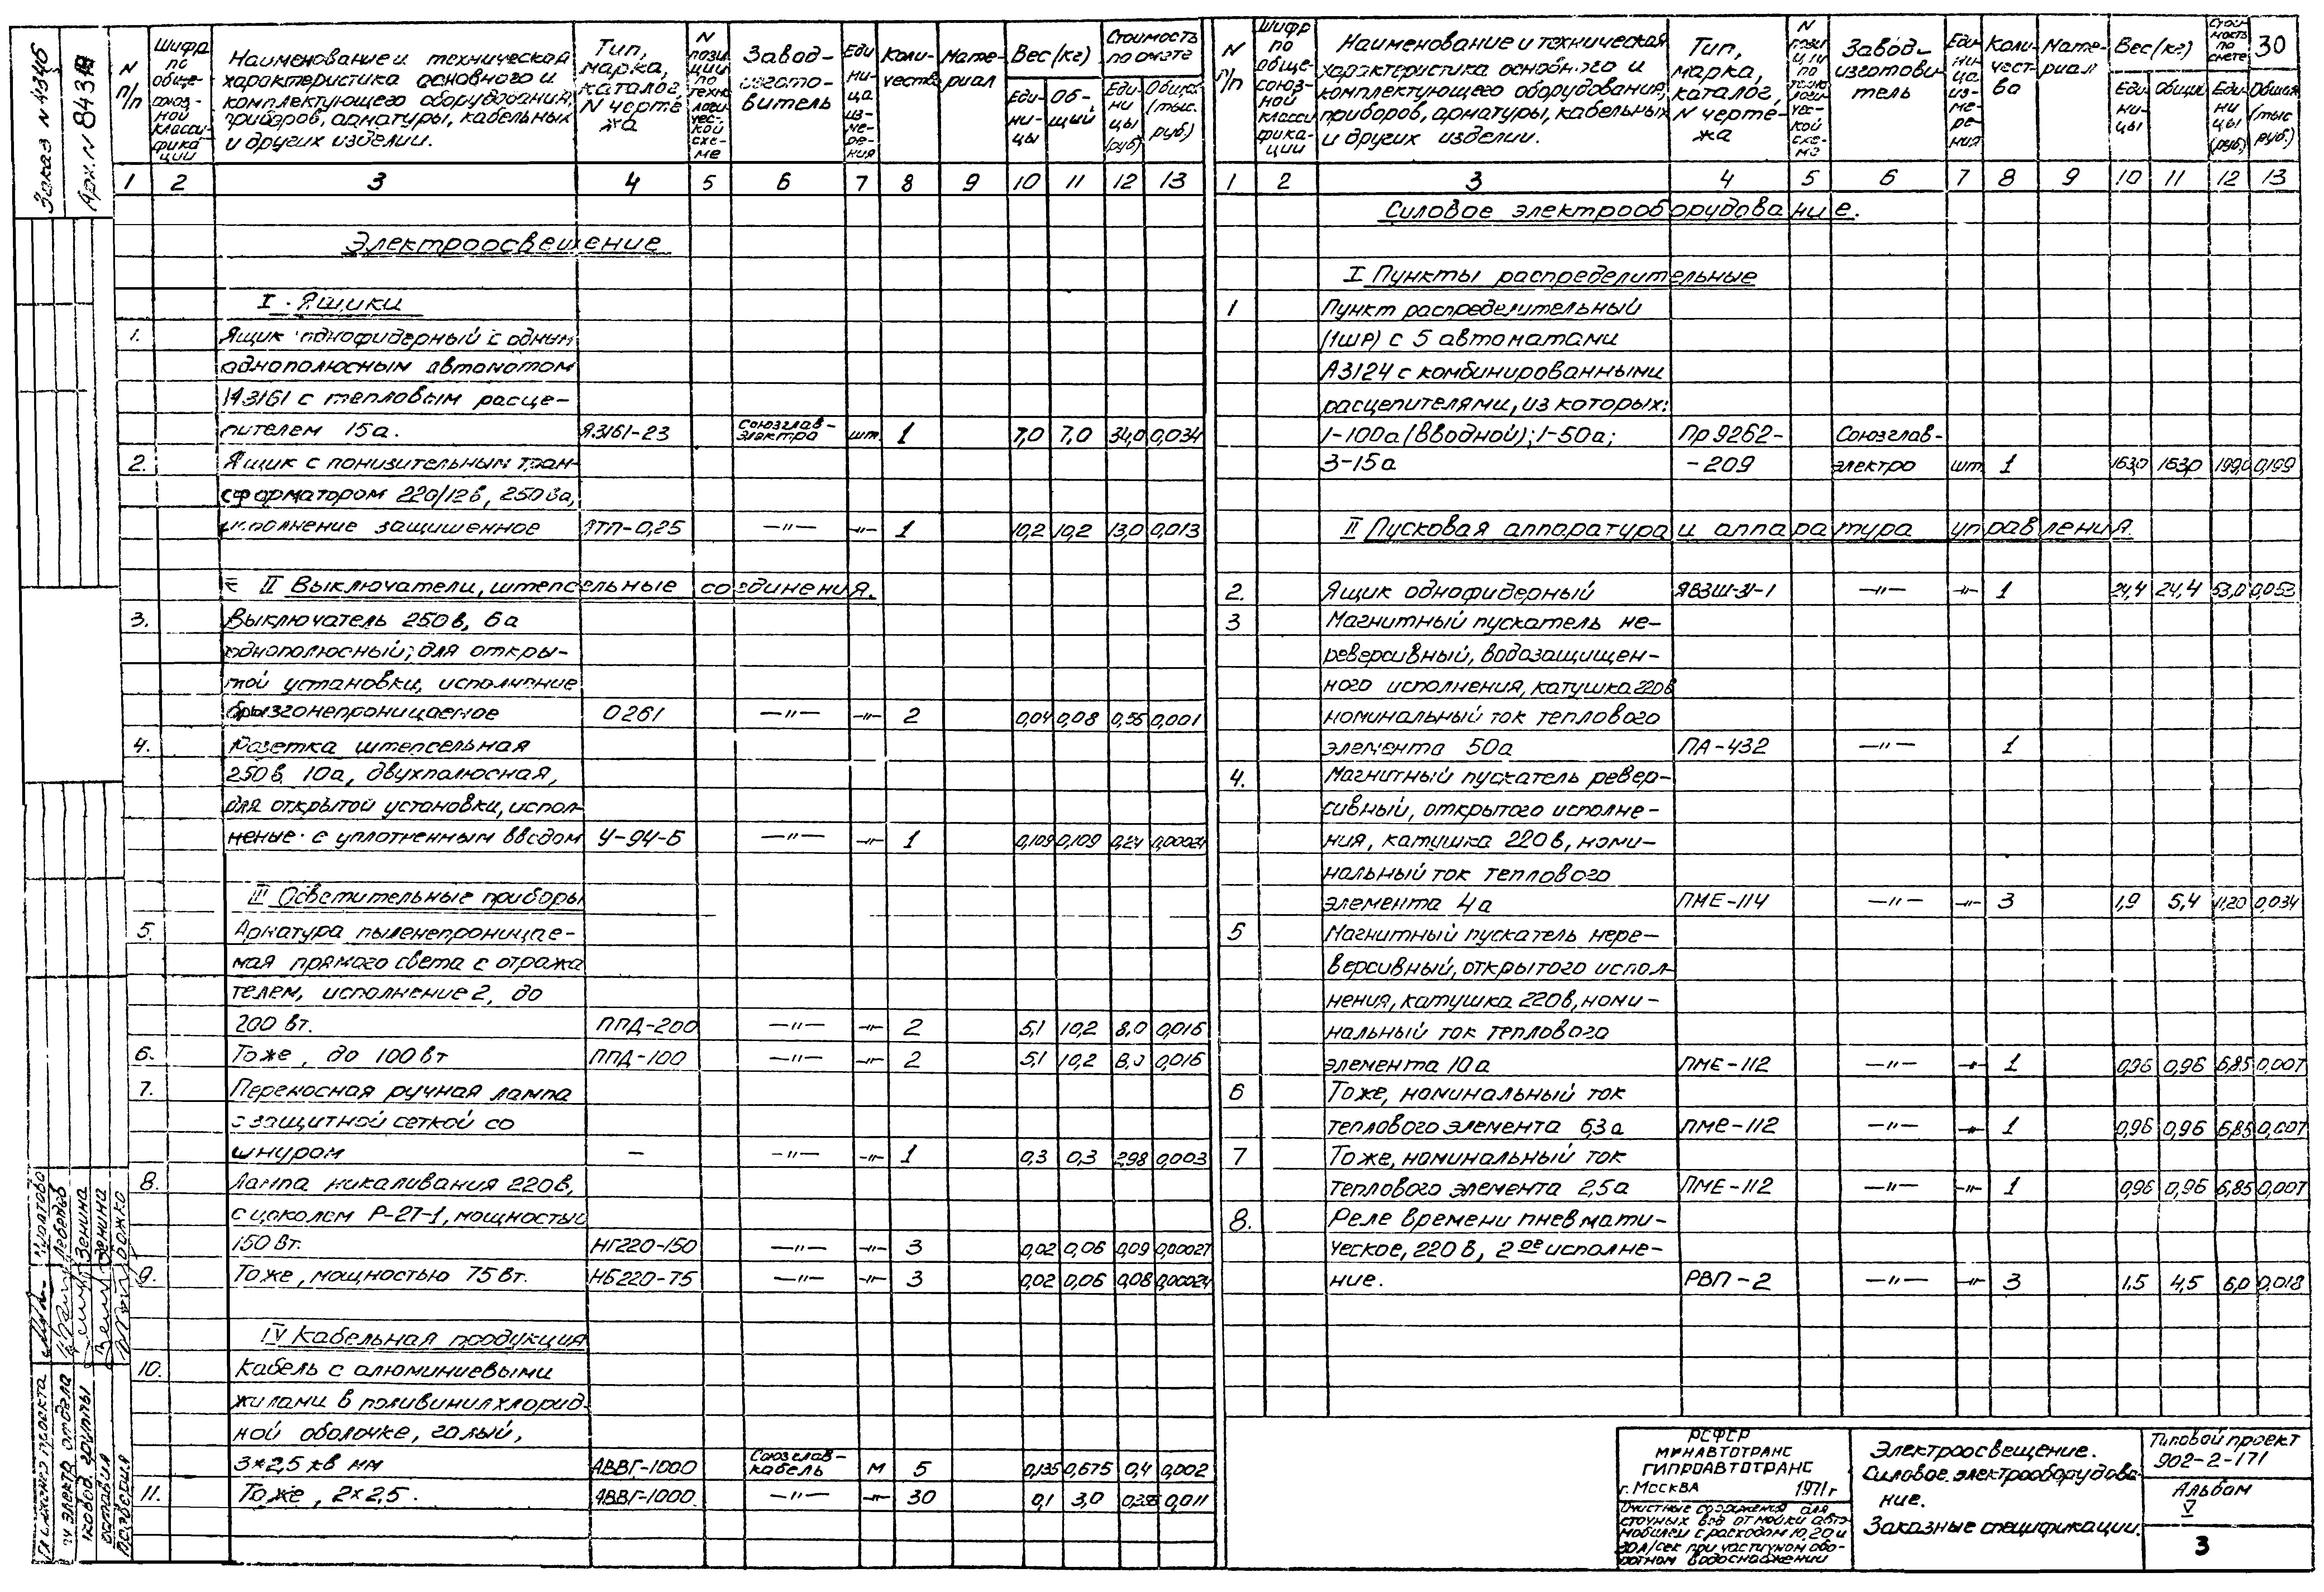 Заказ № 9346
Арх. N 8431
N п/п
Шифр по обще-союз-ной класси-фика-ции
Наименование и техническая
характеристика основного и
комплектующего оборудования,
приборов, арматуры, кабельных
и других изделий.
Тип, марка, каталог, N черте-жа
N пози-ции по техно-логи-чес-кой схе-ме
Завод-изгото-витель
Еди-ни-ца из-ме-ре-ния
Коли-чество
Мате-риал
Вес (кг)
Еди-ни-цы
Об-щий
Стоимость по смете
Еди-ни-цы (руб)
Общая (тыс. руб)
1 2 3 4 5 6 7 8 9 10 11 12 13
Электроосвещение
I. Ящики
1. Ящик однофидерный с одним
однополюсным автоматом
А3161 с тепловым расце-
пителем 15а. Я3161-23 Союзглав-электро шт. 1 7,0 7,0 34,0 0,034
2. Ящик с понизительным тран-
сформатором 220/12в, 250ва,
исполнение защищенное ЯТП-0,25 —"— —"— 1 10,2 10,2 13,0 0,013
II Выключатели, штепсельные соединения.
3. Выключатель 250в, 6а
однополюсный, для откры-
той установки, исполнение
брызгонепроницаемое 0261 —"— —"— 2 0,04 0,08 0,56 0,001
4. Розетка штепсельная
250в, 10а, двухполюсная,
для открытой установки, испол-
нение с уплотненным вводом У-94-Б —"— —"— 1 0,109 0,109 0,24 0,00024
III Осветительные приборы
5. Арматура пыленепроницае-
мая прямого света с отража
телем, исполнение 2, до
200 вт. ППД-200 —"— —"— 2 5,1 10,2 8,0 0,016
6. Тоже, до 100 вт ППД-100 —"— —"— 2 5,1 10,2 8,0 0,016
7. Переносная ручная лампа
с защитной сеткой со
шнуром — —"— —"— 1 0,3 0,3 2,98 0,003
8. Лампа накаливания 220в,
с цоколем Р-27-1, мощностью
150 вт. НГ220-150 —"— —"— 3 0,02 0,06 0,09 0,00027
9. Тоже, мощностью 75 вт. НБ220-75 —"— —"— 3 0,02 0,06 0,08 0,00024
IV Кабельная продукция
10. Кабель с алюминиевыми
жилами в поливинилхлорид-
ной оболочке, голый,
3×2,5 кв мм АВВГ-1000 Союзглав-кабель м 5 0,135 0,675 0,4 0,002
11. Тоже, 2×2,5. АВВГ-1000 —"— —"— 30 0,1 3,0 0,011
N п/п
Шифр по обще-союз-ной класси-фика-ции
Наименование и техническая
характеристика основного и
комплектующего оборудования,
приборов, арматуры, кабельных
и других изделий.
Тип, марка, каталог, N черте-жа
N пози-ции по техно-логи-чес-кой схе-ме
Завод-изготови-тель
Еди-ни-ца из-ме-ре-ния
Коли-чест-ва
Мате-риал
Вес (кг)
Еди-ни-цы
Общий
Стои-мость по смете
30
Еди-ни-цы (руб)
Общая (тыс руб.)
1 2 3 4 5 6 7 8 9 10 11 12 13
Силовое электрооборудование.
I Пункты распределительные
1 Пункт распределительный
(1ШР) с 5 автоматами
А3124 с комбинированными
расцепителями, из которых:
1-100а (вводной); 1-50а; Пр 9262- Союзглав-
3-15а -209 электро шт. 1 163,0 163,0 199,0 0,199
II Пусковая аппаратура и аппаратура управления.
2. Ящик однофидерный ЯВЗШ-31-1 —"— —"— 1 24,4 24,4 53,0 0,053
3 Магнитный пускатель не-
реверсивный, водозащищен-
ного исполнения, катушка 220в
номинальный ток теплового
элемента 50а ПА-432 —"— 1
4. Магнитный пускатель ревер-
сивный, открытого исполне-
ния, катушка 220в, номи-
нальный ток теплового
элемента 4а ПМЕ-114 —"— —"— 3 1,9 5,4 11,20 0,034
5 Магнитный пускатель нере-
версивный, открытого испол-
нения, катушка 220в, номи-
нальный ток теплового
элемента 10а ПМЕ-112 —"— —"— 1 0,96 0,96 6,85 0,007
6 Тоже, номинальный ток
теплового элемента 6,3а ПМЕ-112 —"— —"— 1 0,96 0,96 6,85 0,007
7 Тоже, номинальный ток
теплового элемента 2,5а ПМЕ-112 —"— —"— 1 0,96 0,96 6,85 0,007
8. Реле времени пневмати-
ческое, 220в, 2ое исполне-
ние. РВП-2 —"— —"— 3 1,5 4,5 6,0 0,018
Гл. инженер проекта Муратова
Нач. электр. отдела Лебедев
Руковод. группы Зенина
Составил Зенина
Проверил
РСФСР
МИНАВТОТРАНС
ГИПРОАВТОТРАНС
г. Москва 1971г
Очистные сооружения для
сточных вод от мойки авто-
мобилей с расходом 10, 20 и
30 л/сек при частичном обо-
ротном водоснабжении
Электроосвещение.
Силовое электрооборудова-
ние.
Заказные спецификации.
Типовой проект
902-2-171
Альбом
V
3